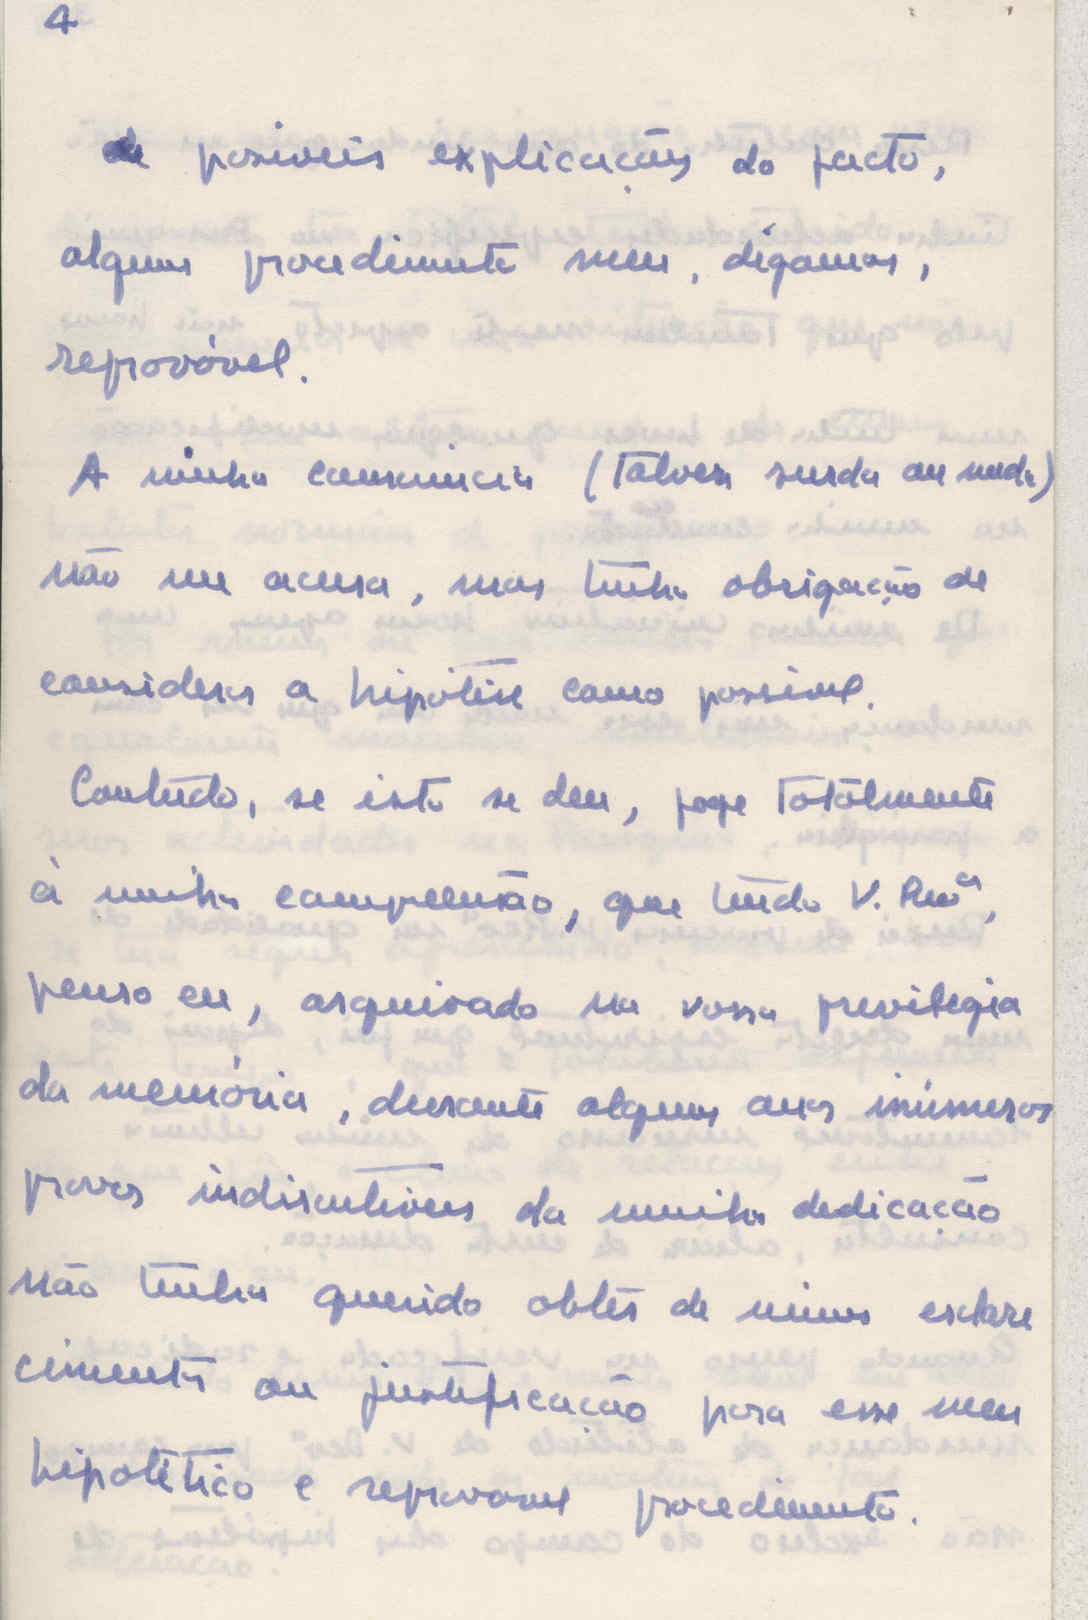 4
de possiveis explicações do facto,
algum procedimento meu, digamos,
reprovável.
A minha consciencia (talvez surda ou muda)
não me acusa, mas tenho obrigação de
considerar a hipótese como possivel.
Contudo, se isto se deu, foge totalmente
à minha compreensão, que tendo V. Revª,
penso eu, arquivado na vossa previlegia
da memória, durante alguns anos inúmeras
provas indiscutiveis da minha dedicação
não tenha querido obter de mim esclare
cimento ou justificação para esse meu
hipotético e reprovavel procedimento.